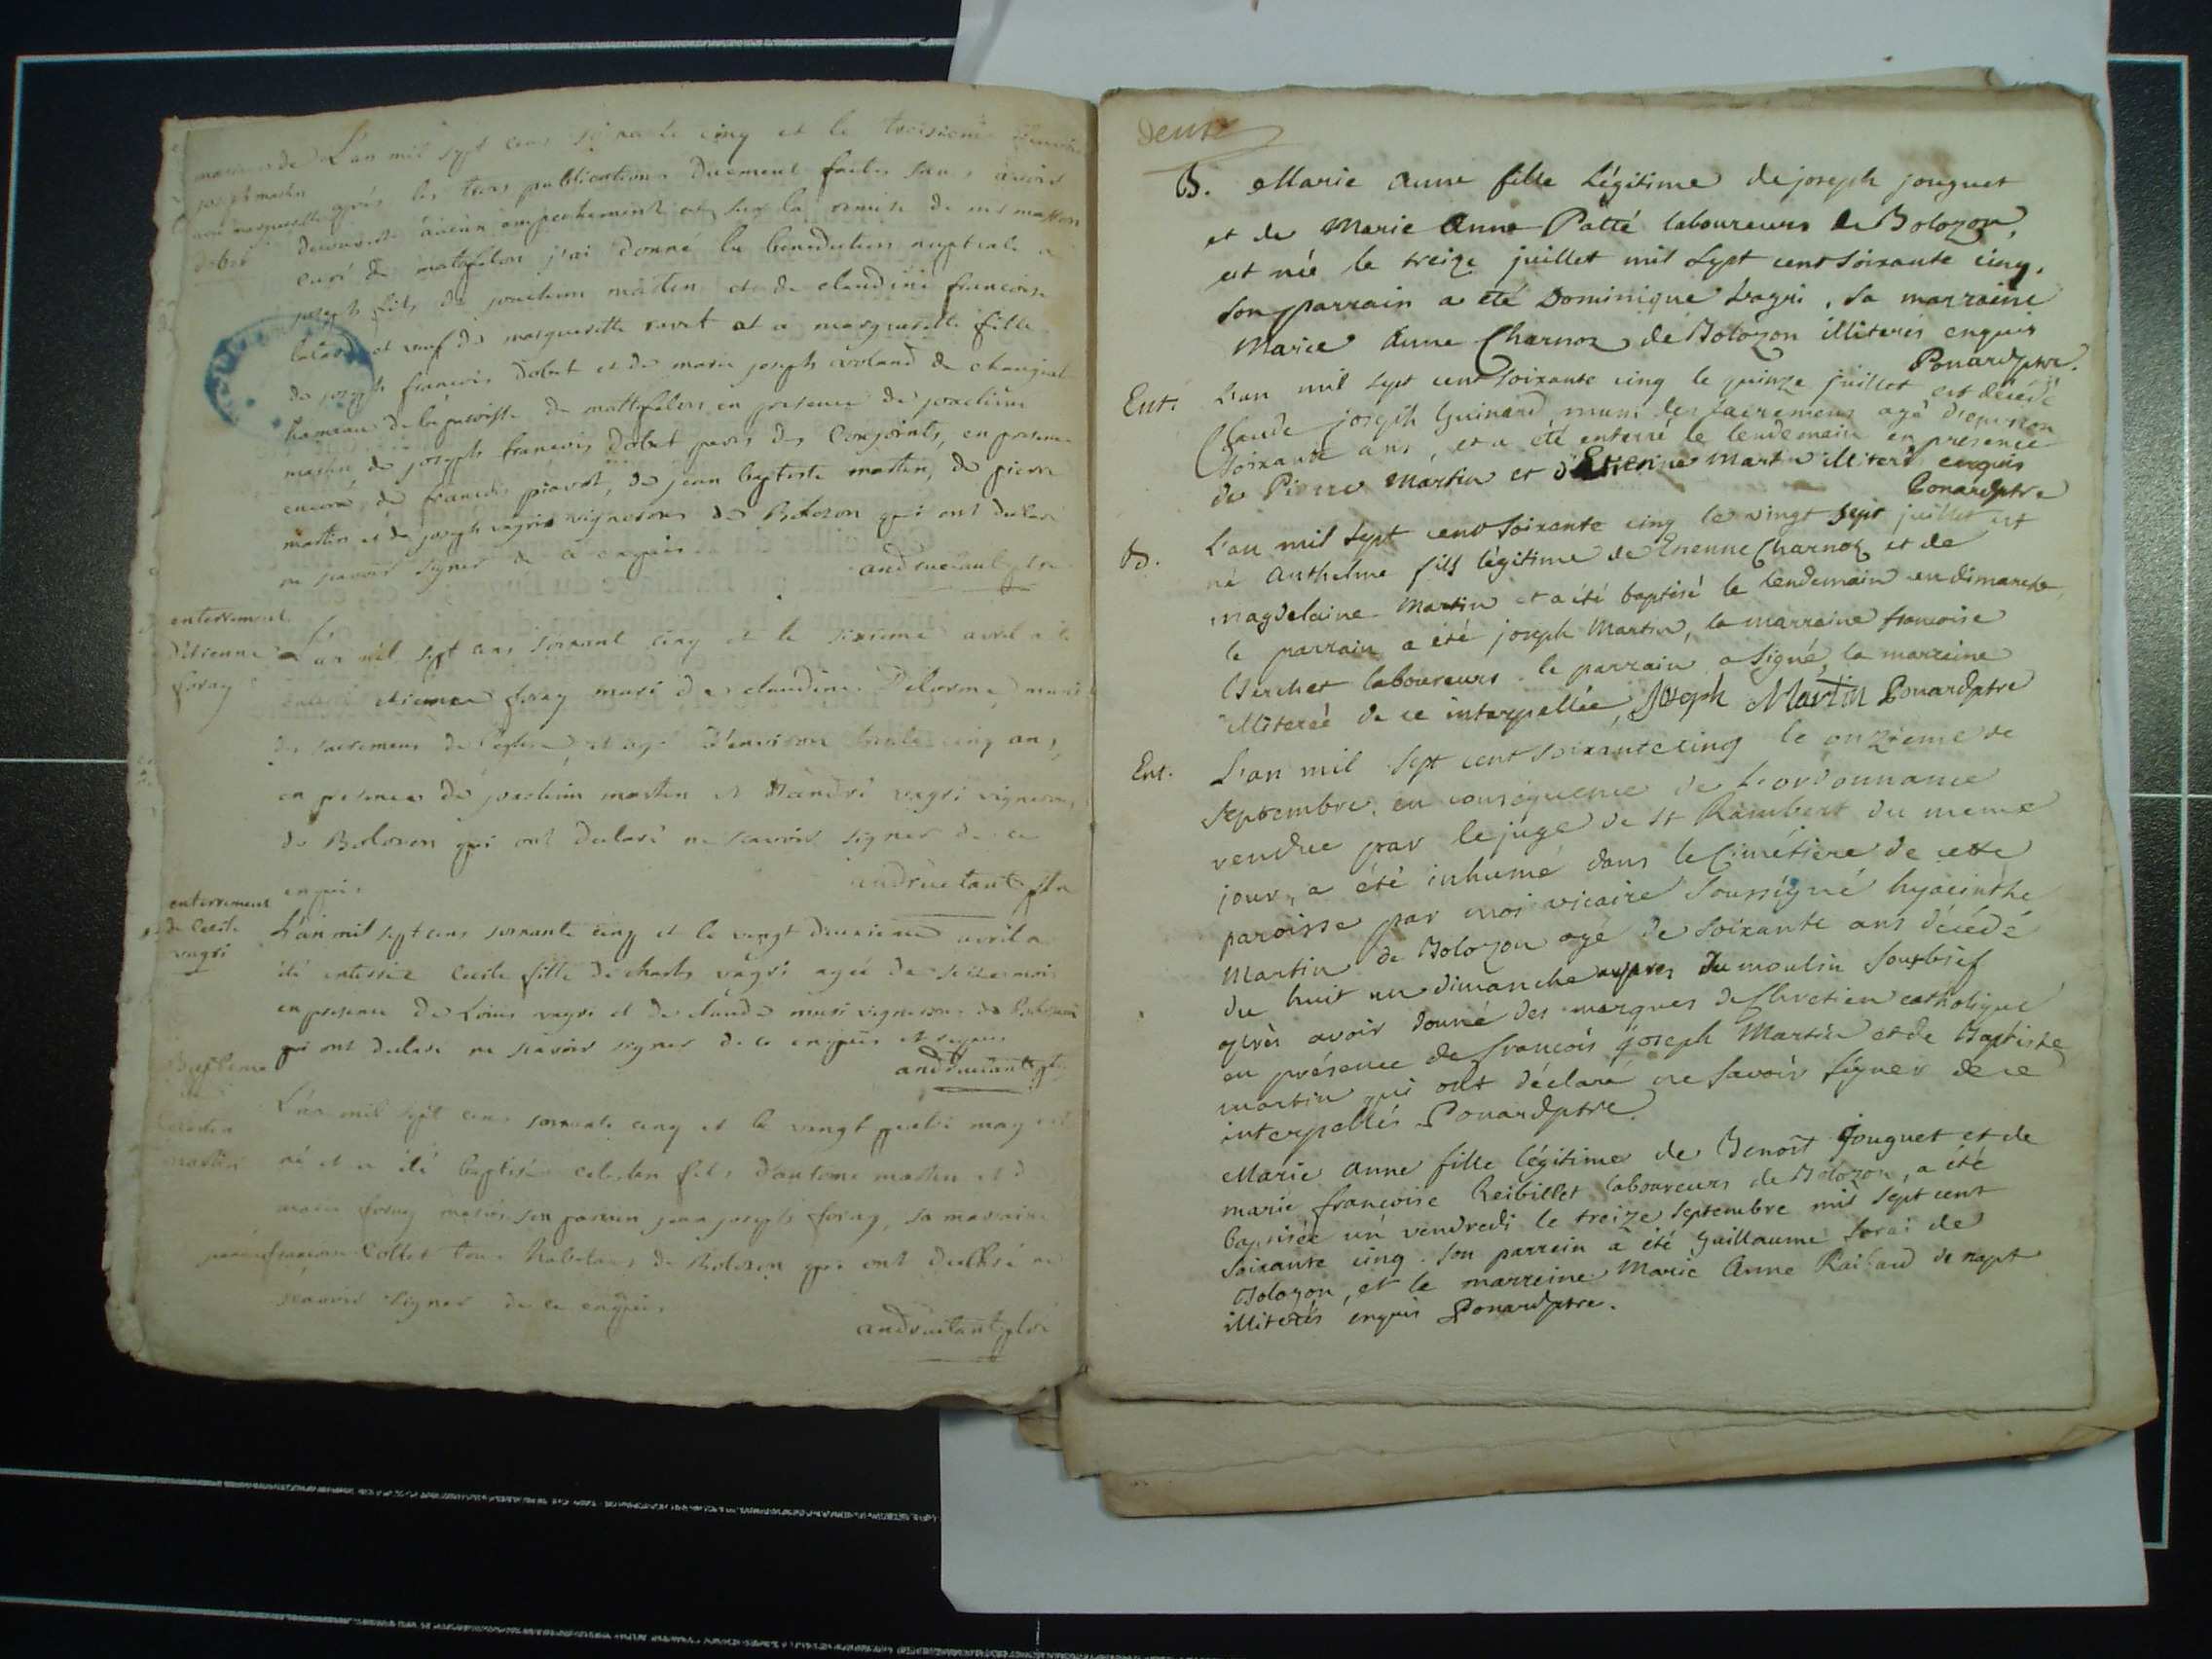 mariage de L'an mil sept cens soixante cinq et le troisieme
joseph martin
après les trois publications duement faites sans avoir
decouvert aucun empechement et sur la remise de
dobet
curé de matafelon j'ai donné la benediction nuptiale a
joseph fils de joachim martin et de claudine francoise
et veuf de marguerite ravet et a marguerite fille
de joseph francois dobet et de marie joseph
hameau de la paroisse de mattafelon en presence de joachim
martin de joseph francois dobet peres des conjoints, en presence
encore de francois pravot, de jean baptiste martin, de pierre
martin et de joseph vagri vignerons de Bolozon qui ont declaré
ne scavoir signer de ce enquis
enterrement
d'etienne
foray
L'an mil sept cens soixant cinq et le sixieme avril a été
enterré etienne foray mari de claudine Delorme, muni
des sacremens de l'eglise et agé d'environ cinq ans,
en presence de joachim martin et d'andré vagri vignerons
de Bolozon qui ont declaré ne scavoir signer de ce
enquis
enterrement
de Cecile
vagri
L'an mil sept cens soixante cinq et le vingt deuxieme avril a
été enterrée Cecile fille de charles vagri agée de seize mois
en presence de Louis vagri et de claude vignerons de Bolozon
qui ont declaré ne scavoir signer de ce enquis et requis
Baptême
de
martin
L'an mil sept cens soixante cinq et le vingt may est
né et a été baptisé celestin fils d'antoine martin et de
marie foray mariés son parrain jean joseph foray, sa marraine
francoise Collet tous habitans de Bolozon qui ont declaré ne
scavoir signer de ce enquis
deux
B. Marie Anne fille légitime de joseph jouguet
et de Marie Anne Patté laboureurs de Bolozon,
est née le treize juillet mil sept cent soixante cinq.
son parrain a été Dominique vagri, sa marraine
Marie Anne Charnoz de Bolozon illiterés enquis
Ponard ptre.
Ent. L'an mil sept cent soixante cinq le quinze juillet est décédé
Claude joseph Guinard muni des sacremens agé d'environ
soixante ans, et a été enterré le lendemain en présence
de Pierre Martin et d'Etienne Martin illiterés enquis
Ponard ptre
B. L'an mil sept cent soixante cinq le vingt sept juillet est
né Anthelme fils légitime de Etienne Charnoz et de
magdelaine Martin et a été baptisé le lendemain un dimanche,
le parrain a été joseph Martin, la marraine francoise
Berchet laboureurs. le parrain a signé, la marraine
illiterée de ce interpellée, Joseph Martin Ponard ptre
Ent. L'an mil sept cent soixante cinq le onzieme de
septembre, en conséquence de l'ordonnance
rendue par le juge de St Rambert du meme
jour, a été inhumé dans le Cimétiere de cette
paroisse par moi vicaire soussigné hyacinthe
Martin de Bolozon agé de soixante ans décédé
du huit un dimanche aupres du moulin sousbief
après avoir donné des marques de Chretien catholique
en présence de francois joseph Martin et de Baptiste
martin qui ont déclaré ne savoir signer de ce
interpellés Ponard ptre.
Marie Anne fille légitime de Benoît Jouguet et de
marie françoise Reibillet laboureurs de Bolozon, a été
baptisée un vendredi le treize septembre mil sept cent
soixante cinq. son parrein a été guillaume forai de
Bolozon, et la marreine Marie Anne de napt
illiterés enquis Ponard ptre.